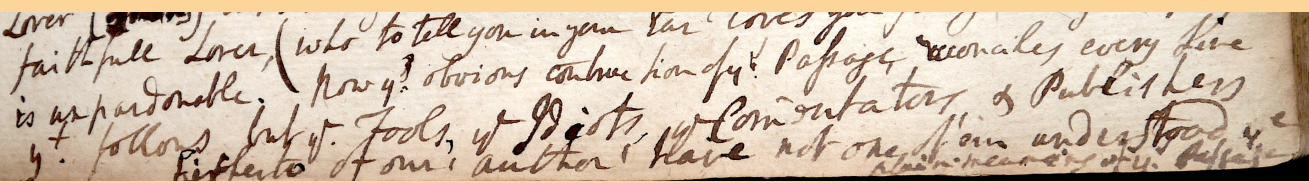 Lover
faithfull Lover, (who to tell you in your Ear loves you
is unpardonable. Now ye obvious construction of ye Passage, reconciles every Line
yt follows but ye Fools, ye Idiots, ye Comentators & Publishers
hitherto of our author have not one of 'em understood ye
plain meaning of ye Passage